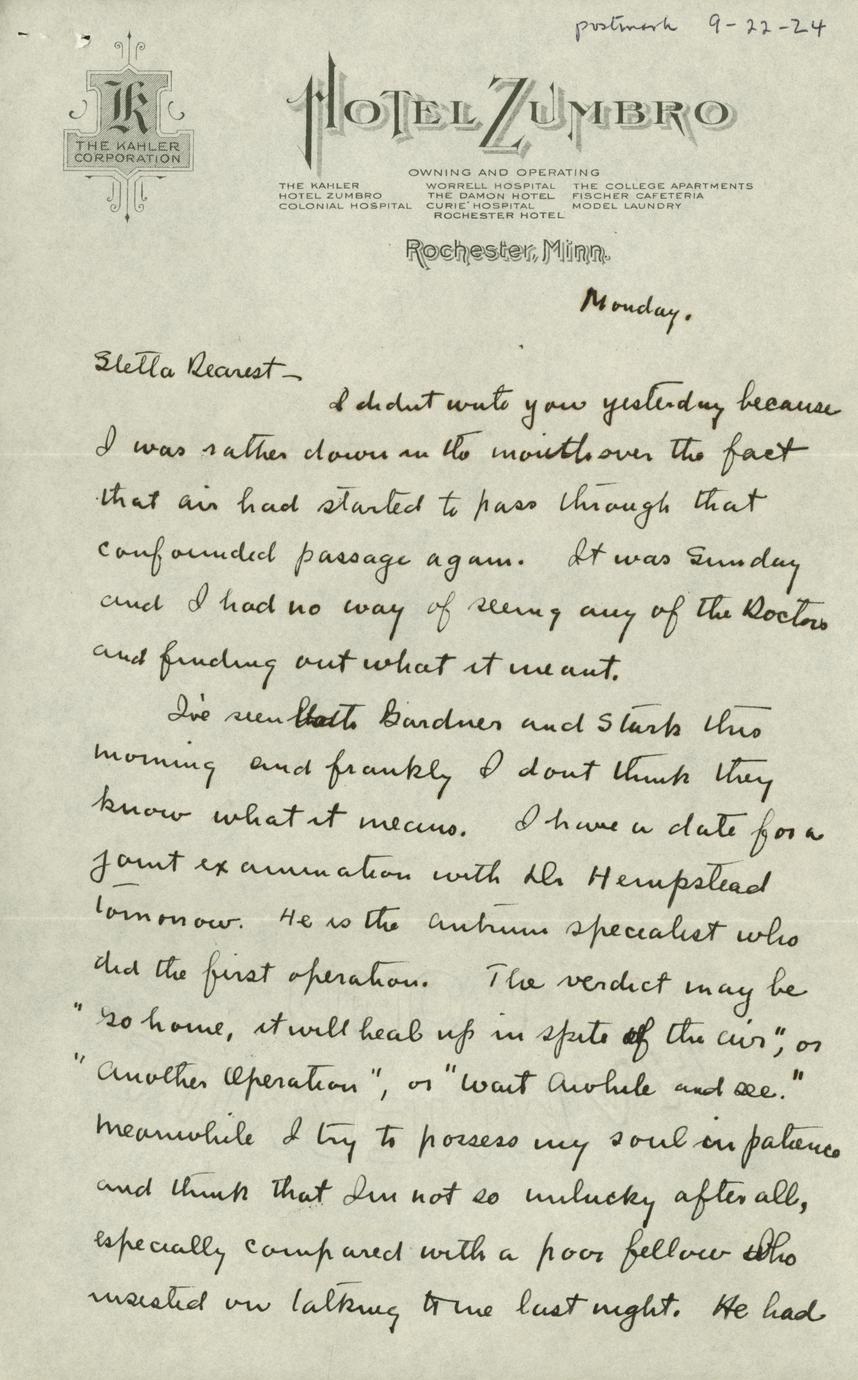 postmark 9-22-24
K
THE KAHLER
CORPORATION
HOTEL ZUMBRO
OWNING AND OPERATING
THE KAHLER WORRELL HOSPITAL THE COLLEGE APARTMENTS
HOTEL ZUMBRO THE DAMON HOTEL FISCHER CAFETERIA
COLONIAL HOSPITAL CURIE HOSPITAL MODEL LAUNDRY
ROCHESTER HOTEL
Rochester, Minn.
Monday.
Stella Dearest—
I didnt write you yesterday because
I was rather down in the mouth over the fact
that air had started to pass through that
confounded passage again. It was Sunday
and I had no way of seeing any of the Doctors
and finding out what it meant.
I've seen Gardner and Stark this
morning and frankly I dont think they
know what it means. I have a date for a
joint examination with Dr Hempstead
tomorrow. He is the antrum specialist who
did the first operation. The verdict may be
"Go home, it will heal up in spite of the air", or
"Another Operation", or "wait awhile and see."
Meanwhile I try to possess my soul in patience
and think that Im not so unlucky after all,
especially compared with a poor fellow who
insisted on talking to me last night. He had